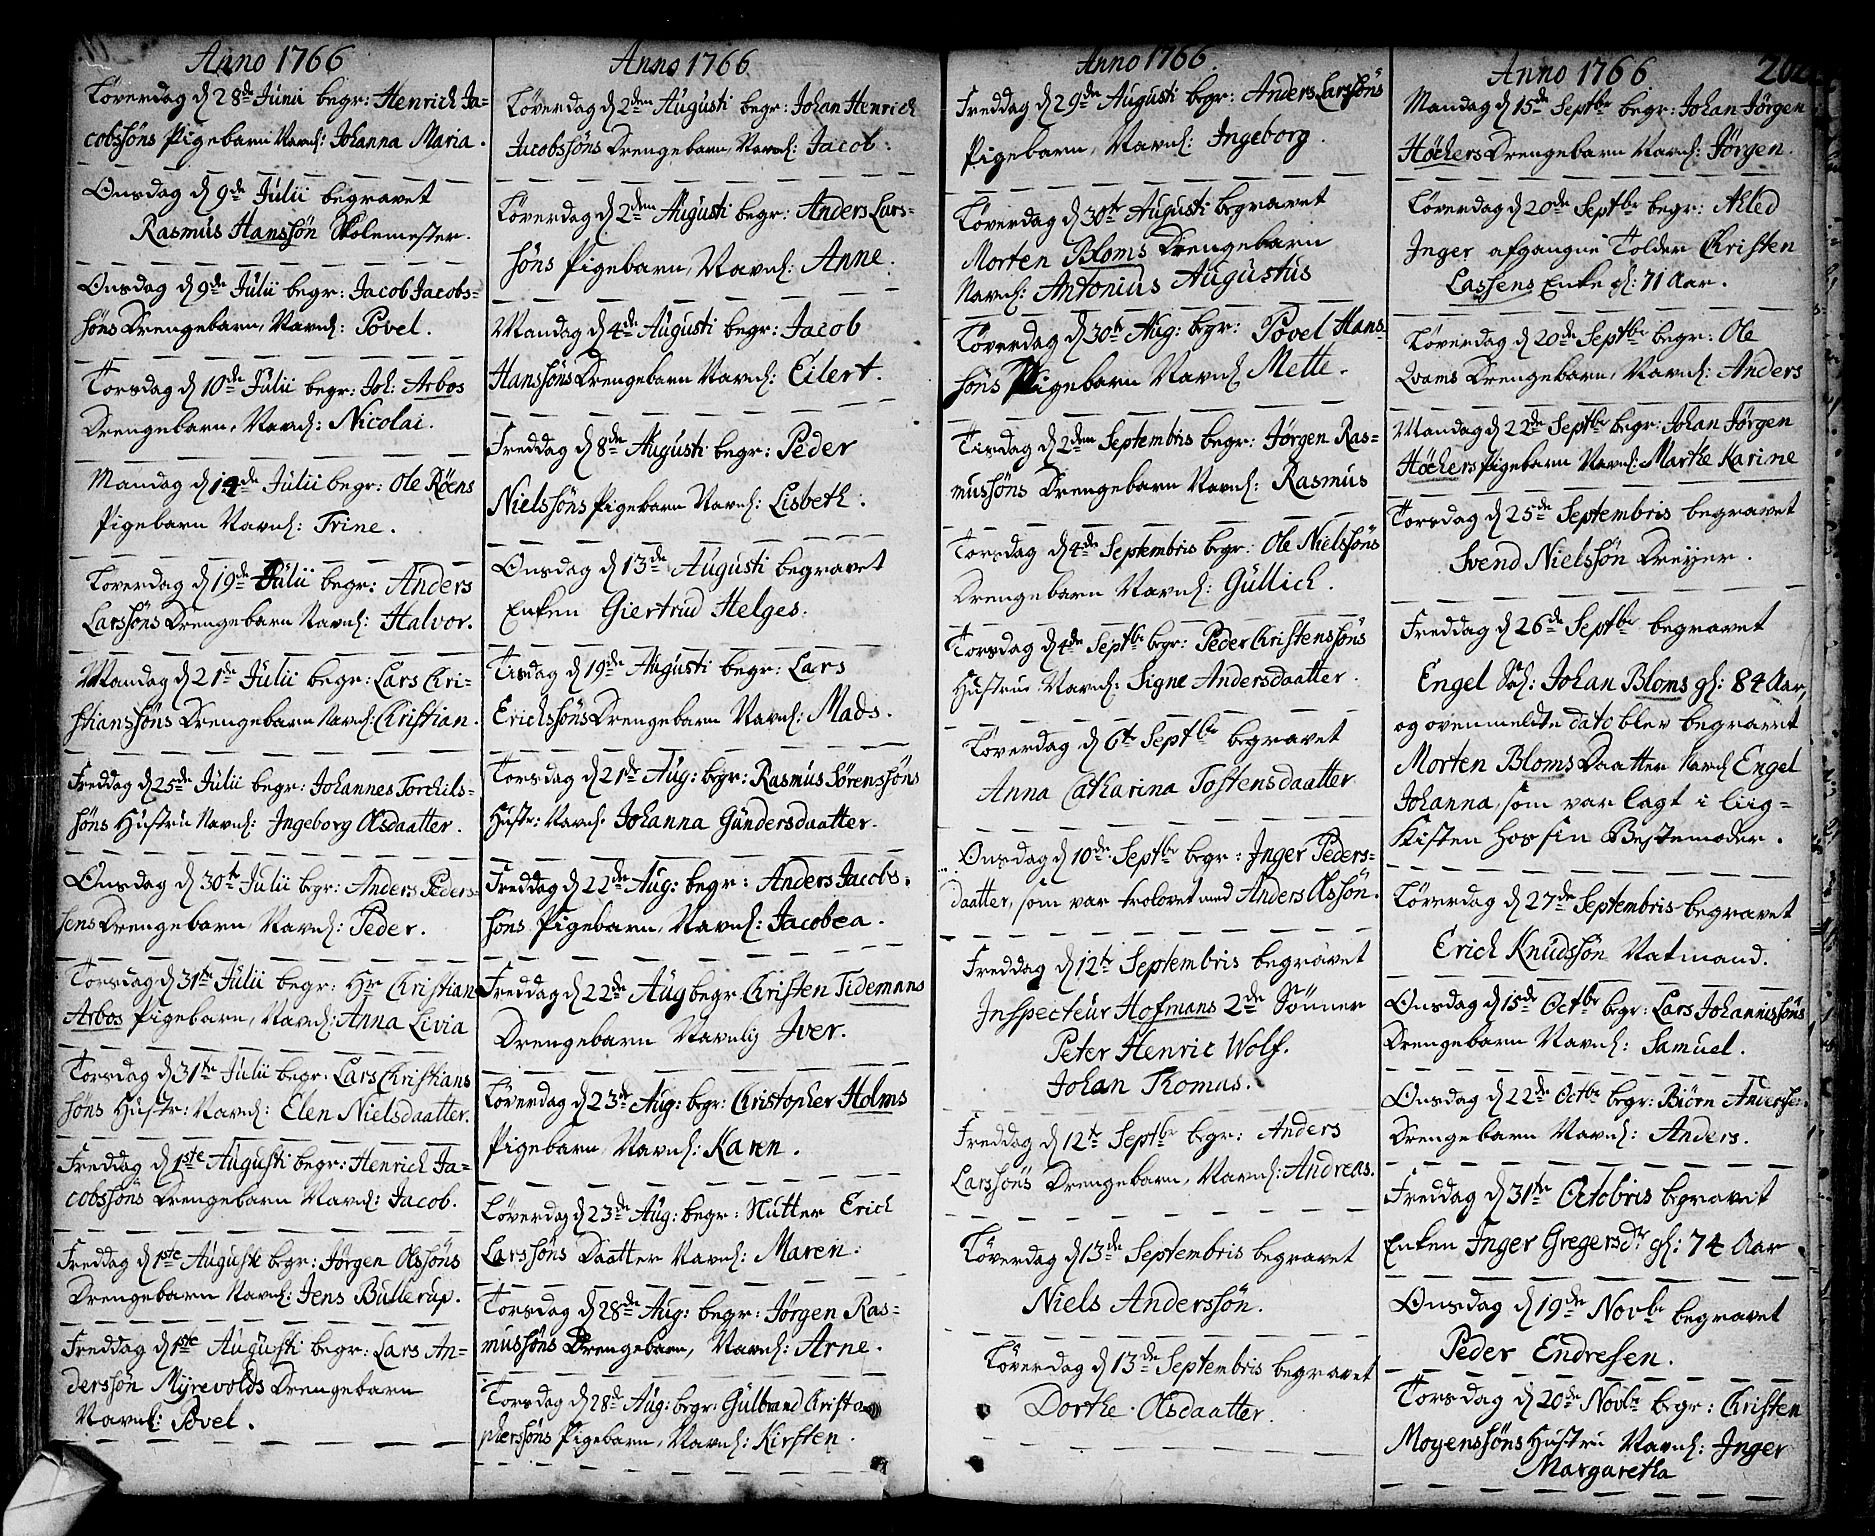 Anno 1766
Löverdag d 28de Junii begr: Henrich Ja=
cobssöns Pigebarn Navnl: Johanna Maria.
Onsdag d 9de Julii begravet
Rasmus Hanssön Skolemester.
Onsdag d 9de Julii begr: Jacob Jacobs=
söns Drengebarn, Navnl: Povel.
Torsdag d 10de Julii begr: Joh: Arbos
Drengebarn, Navnl: Nicolai.
Mandag d 14de Julii begr: Ole Röens
Pigebarn Navnl: Trine.
Löverdag d 19de Julii begr: Anders
Larssöns Drengebarn Navnl: Halvor.
Mandag d 21de Julii begr: Lars Chri=
stianssöns Drengebarn Navnl: Christian.
Freddag d 25de Julii begr: Johannes Torchils=
söns Hustru Navnl: Ingeborg Olsdaatter.
Onsdag d 30te Julii begr: Anders Peders=
sens Drengebarn, Navnl: Peder.
Torsdag d 31te Julii begr: Hr Christian
Arbos Pigebarn, Navnl: Anna Livia
Torsdag d 31te Julii begr: Lars Christians
söns Hustr: Navnl: Elen Nielsdaatter.
Freddag d 1ste Augusti begr: Henrich Ja=
cobssöns Drengebarn Navnl: Jacob.
Freddag d 1ste Augusti begr: Jörgen Olssöns
Drengebarn Navnl: Jens Bullerup.
Freddag d 1ste Augusti begr: Lars An=
derssön Myrevolds Drengebarn
Navnl: Povel.
Anno 1766
Löverdag d 2den Augusti begr: Johan Henrich
Jacobssöns Drengebarn, Navnl: Jacob.
Löverdag d 2den Augusti begr: Anders Lars=
söns Pigebarn, Navnl: Anne.
Mandag d 4de Augusti begr: Jacob
Hanssöns Drengebarn Navnl: Eilert.
Freddag d 8de Augusti begr: Peder
Nielssöns Pigebarn Navnl: Lisbeth.
Onsdag d 13de Augusti begravet
Enken Giertrud Helges.
Tisdag d 19de Augusti begr: Lars
Erickssöns Drengebarn Navnl: Mads.
Torsdag d 21de Aug: begr: Rasmus Sörenssöns
Hustr: Navnl: Johanna Gundersdaatter.
Freddag d 22de Aug: begr: Anders Jacobs=
söns Pigebarn, Navnl: Jacobea.
Freddag d 22de Aug begr Christen Tidemans
Drengebarn Navnlig Iver.
Löverdag d 23de Aug: begr: Christopher Holms
Pigebarn, Navnl: Karen.
Löverdag d 23de Aug: begr: Hutter Erich
Larssöns Daatter Navnl: Maren.
Torsdag d 28de Aug: begr: Jörgen Ras=
mussöns Drengebarn, Navnl: Arne.
Torsdag d 28de Aug: begr: Gulbrand Christo
pherssöns Pigebarn, Navnl: Kirsten.
Anno 1766.
Freddag d 29de Augusti begr: Anders Larssöns
Pigebarn, Navnl: Ingeborg.
Löverdag d 30te Augusti begravet
Morten Bloms Drengebarn
Navnl: Antonius Augustus
Löverdag d 30te Aug: begr: Povel Hans=
söns Pigebarn Navnl Mette.
Tisdag d 2den Septembris begr: Jörgen Ras=
mussöns Drengebarn Navnl: Rasmus
Torsdag d 4de Septembris begr: Ole Nielssöns
Drengebarn Navnl: Gullich.
Torsdag d 4de Septbr begr: Peder Christenssöns
Hustrue Navnl: Signe Andersdaatter.
Löverdag d 6te Septbr begravet
Anna Catharina Tostensdaatter
Onsdag d 10de Septbr begr: Inger Peders=
daatter, som var trolovet med Anders Olssön.
Freddag d 12te Septembris begravet
Inspecteur Hofmans 2de Sönner
Peter Henric Wolf.
Johan Thomas.
Freddag d 12te Septbr begr: Anders
Larssöns Drengebarn, Navnl: Andreas.
Löverdag d 13de Septembris begravet
Niels Anderssön.
Löverdag d 13de Septembris begravet
Dorthe Olsdaatter.
Anno 1766
Mandag d 15de Septbr begr: Johan Jörgen
Höckers Drengebarn Navnl: Jörgen.
Löverdag d 20de Septbr begr: Ahled
Inger afgangne Tolder Christen
Lassens Enke gl: 71 Aar.
Löverdag d 20de Septbr begr: Ole
Qvams Drengebarn, Navnl: Anders
Mandag d 22de Septbr begr: Johan Jörgen
Höckers Pigebarn Navnl: Marthe Karine
Torsdag d 25de Septembris begravet
Svend Nielssön Dreyer.
Freddag d 26de Septbr begravet
Engel Sal: Johan Bloms gl: 84 Aar,
og ovenmeldte dato blev begravet
Morten Bloms Daatter Navnl Engel
Johanna, som var lagt i Liig=
Kisten hos sin Bestemoder.
Löverdag d 27de Septembris begravet
Erich Knudssön Vatmand.
Onsdag d 15de Octbr begr: Lars Johannissöns
Drengebarn Navnl: Samuel.
Onsdag d 22de Octbr begr: Biörn Anderssens
Drengebarn Navnl: Anders.
Freddag d 31te Octobris begravet
Enken Inger Gregersdr gl: 74 Aar.
Onsdag d 19de Novbr begravet
Peder Endresen.
Torsdag d 20de Novbr begr: Christen
Moyenssöns Hustru Navnl: Inger
Margaretha